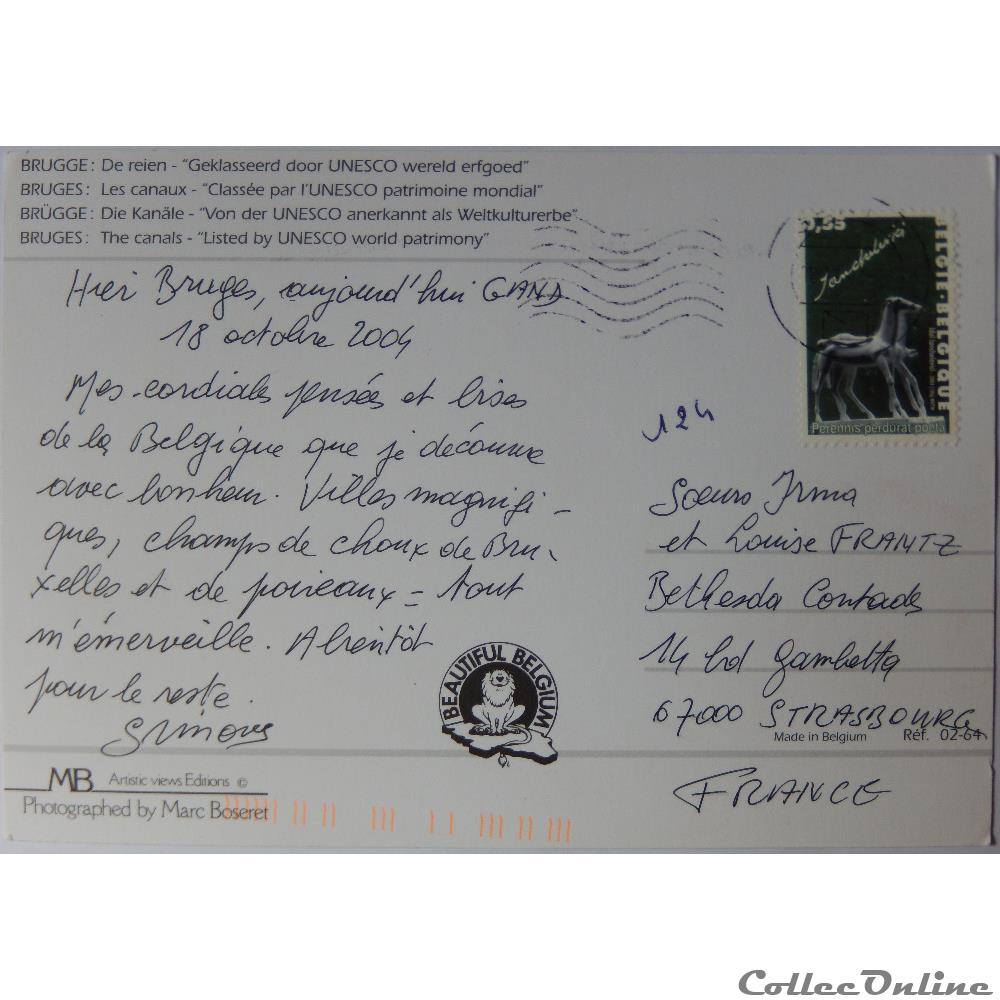 BRUGGE: De reien - "Geklasseerd door UNESCO wereld erfgoed"
BRUGES: Les canaux - "Classée par l'UNESCO patrimoine mondial"
BRÜGGE: Die Kanäle - "Von der UNESCO anerkannt als Weltkulturerbe"
BRUGES: The canals - "Listed by UNESCO world patrimony"
Hier Bruges, aujourd'hui GAND
18 octobre 2004
Mes cordiales pensées et bises
de la Belgique que je découvre
avec bonheur. Villes magnifi-
ques, champs de choux de Bru-
xelles et de poireaux = tout
m'émerveille. A bientôt
pour le reste.
BEAUTIFUL BELGIUM
MB Artistic views Editions ©
Photographed by Marc Boseret
0,55
BELGIE-BELGIQUE
Perennis perdurat poeta
124
Soeurs Irma
et Louise FRANTZ
Bethesda Contades
14 bd Gambetta
67000 STRASBOURG
Made in Belgium Réf. 02-64
FRANCE
CollecOnline